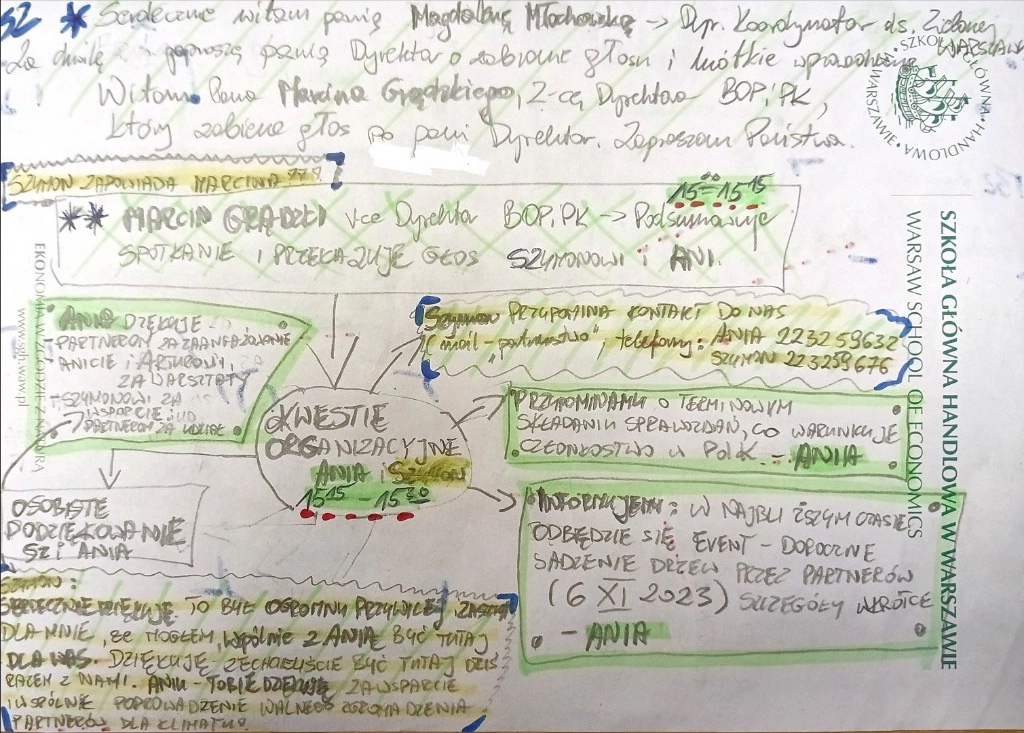 52 * Serdecznie witam panią Magdalenę Młochowską → Dyr. Koordynator ds. Zielonej WARSZAWY
Za chwilę poproszę panią Dyrektor o zabranie głosu i krótkie wprowadzenie
Witam Pana Marcina Grądzkiego, Z-cę Dyrektora BOPiPK,
który zabierze głos po pani Dyrektor. Zapraszam Państwa.
SZKOŁA GŁÓWNA HANDLOWA W WARSZAWIE
SZYMON ZAPOWIADA MARCINA
15⁰⁰-15¹⁵
** MARCIN GRĄDZKI vce Dyrektor BOPiPK → Podsumowuje
SPOTKANIE I PRZEKAZUJE GŁOS SZYMONOWI i ANI.
ANIA DZIĘKUJE
PARTNEROM ZA ZAANGAŻOWANIE
ANICIE i ARTUROWI,
ZA WARSZTATY
SZYMONOWI ZA
WSPARCIE
PARTNEROM ZA
Szymon PRZYPOMINA KONTAKT DO NAS
(mail - "partnerstwo", telefony: ANIA 223259632
SZYMON 223259676
KWESTIE
ORGANIZACYJNE
ANIA i SZYMON
15¹⁵ - 15³⁰
PRZYPOMINAMY O TERMINOWYM
SKŁADANIU SPRAWOZDAŃ, CO WARUNKUJE
CZŁONKOSTWO W PdK. - ANIA
OSOBISTE
PODZIĘKOWANIE
SZ i ANIA
INFORMUJEMY: W NAJBLIŻSZYM CZASIE
ODBĘDZIE SIĘ EVENT - DOROCZNE
SADZENIE DRZEW PRZEZ PARTNERÓW
(6 XI 2023) SZCZEGÓŁY WKRÓTCE
- ANIA
SZYMON:
SERDECZNIE DZIĘKUJĘ. TO BYŁ OGROMNY PRZYWILEJ, ZASZCZYT
DLA MNIE, że MOGŁEM, wspólnie Z ANIĄ BYĆ TUTAJ
DLA WAS. DZIĘKUJĘ ZECHCIELIŚCIE BYĆ TUTAJ DZIŚ
RAZEM Z NAMI. ANIU - TOBIE DZIĘKUJĘ ZA WSPARCIE
I WSPÓLNE POPROWADZENIE WALNEGO ZGROMADZENIA
PARTNERÓW DLA KLIMATU.
SZKOŁA GŁÓWNA HANDLOWA W WARSZAWIE
WARSAW SCHOOL OF ECONOMICS
EKONOMIA W ZGODZIE Z NATURĄ
www.sgh.waw.pl